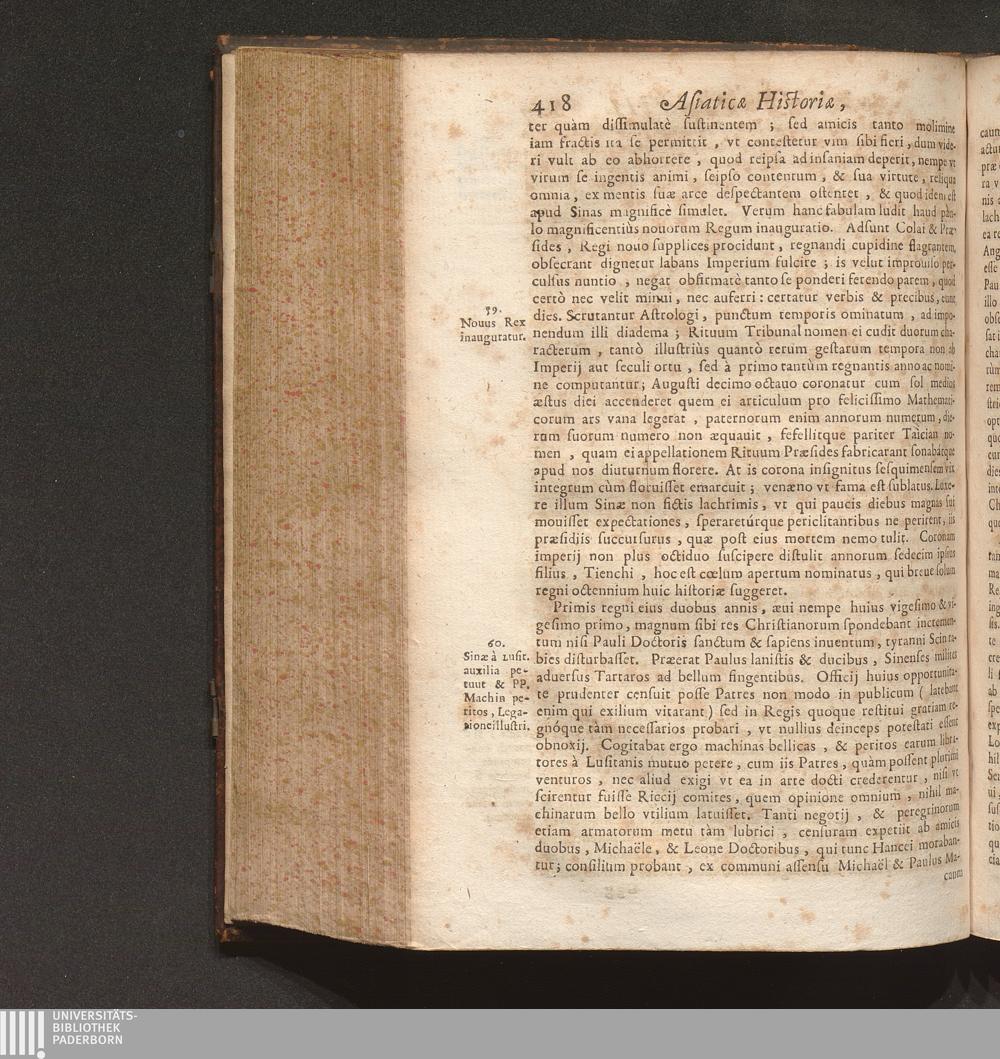 418 Asiaticæ Historiæ,
ter quàm dissimulatè sustinentem ; sed amicis tanto molimine
iam fractis ita se permittit , vt contestetur vim sibi fieri , dum vide-
ri vult ab eo abhorrere , quod reipsa ad insaniam deperit, nempe vt
virum se ingentis animi , seipso contentum , & sua virtute , reliqua
omnia , ex mentis suæ arce despectantem ostentet , & quod idem est
apud Sinas magnificè simulet. Verum hanc fabulam ludit haud pau-
lo magnificentiùs nouorum Regum inauguratio. Adsunt Colai & Præ-
sides , Regi nouo supplices procidunt , regnandi cupidine flagrantem,
obsecrant dignetur labans Imperium fulcire ; is velut improuiso per-
culsus nuntio , negat obfirmatè tanto se ponderi ferendo parem , quod
certò nec velit minui , nec auferri : certatur verbis & precibus, eunt
59.
Nouus Rex
inauguratur.
dies. Scrutantur Astrologi , punctum temporis ominatum , ad impo-
nendum illi diadema ; Rituum Tribunal nomen ei cudit duorum cha-
racterum , tantò illustriùs quantò rerum gestarum tempora non ab
Imperij aut seculi ortu , sed à primo tantùm regnantis anno ac nomi-
ne computantur; Augusti decimo octauo coronatur cum sol medios
æstus diei accenderet quem ei articulum pro felicissimo Mathemati-
corum ars vana legerat , paternorum enim annorum numerum , die-
rum suorum numero non æquauit , fefellitque pariter Taìcian no-
men , quam ei appellationem Rituum Præsides fabricarant sonabátque
apud nos diuturnum florere. At is corona insignitus sesquimensem vix
integrum cùm floruisset emarcuit ; venæno vt fama est sublatus. Luxe-
re illum Sinæ non fictis lachrimis , vt qui paucis diebus magnas sui
mouisset expectationes , speraretúrque periclitantibus ne perirent, iis
præsidiis succursurus , quæ post eius mortem nemo tulit. Coronam
imperij non plus octiduo suscipere distulit annorum sedecim ipsius
filius , Tienchi , hoc est cœlum apertum nominatus , qui breue solum
regni octennium huic historiæ suggeret.
Primis regni eius duobus annis , æui nempe huius vigesimo & vi-
gesimo primo, magnum sibi res Christianorum spondebant incremen-
60.
Sinæ à Lusit.
auxilia pe-
tunt & PP.
Machin pe-
ritos , Lega-
tione illustri.
tum nisi Pauli Doctoris sanctum & sapiens inuentum, tyranni Scin ra-
bies disturbasset. Præerat Paulus lanistis & ducibus , Sinenses milites
aduersus Tartaros ad bellum fingentibus. Officij huius opportunita-
te prudenter censuit posse Patres non modo in publicum ( latebant
enim qui exilium vitarant ) sed in Regis quoque restitui gratiam re-
gnóque tàm necessarios probari , vt nullius deinceps potestati essent
obnoxij. Cogitabat ergo machinas bellicas , & peritos earum libra-
tores à Lusitanis mutuo petere , cum iis Patres , quàm possent plurimi
venturos , nec aliud exigi vt ea in arte docti crederentur , nisi vt
scirentur fuisse Riccij comites , quem opinione omnium , nihil ma-
chinarum bello vtilium latuisset. Tanti negotij , & peregrinorum
etiam armatorum metu tàm lubrici , censuram expetiit ab amicis
duobus , Michaële, & Leone Doctoribus , qui tunc Hancei moraban-
tur; consilium probant , ex communi assensu Michaël & Paulus Ma-
caum
UNIVERSITÄTS-
BIBLIOTHEK
PADERBORN